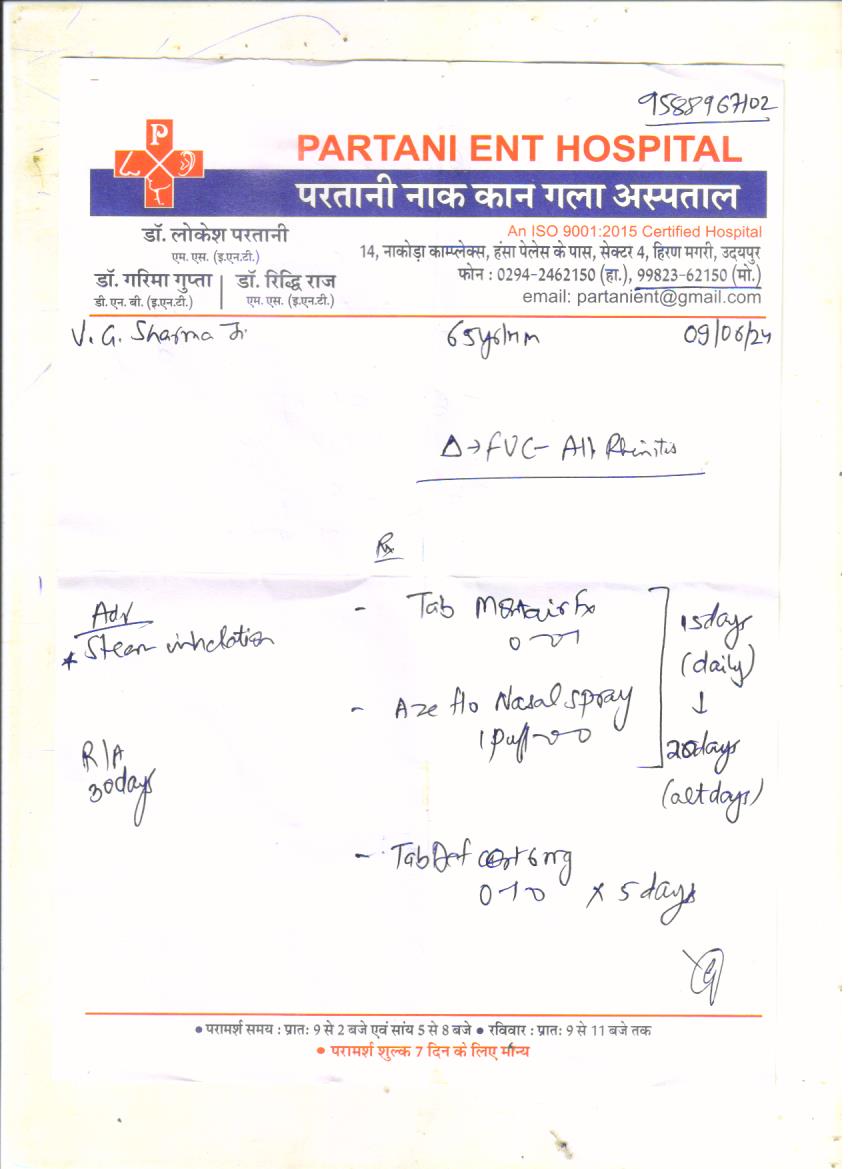 9588967102
P
PARTANI ENT HOSPITAL
परतानी नाक कान गला अस्पताल
An ISO 9001:2015 Certified Hospital
डॉ. लोकेश परतानी
एम. एस. (इ.एन.टी.)
डॉ. गरिमा गुप्ता | डॉ. रिद्धि राज
डी. एन. बी. (इ.एन.टी.) एम. एस. (इ.एन.टी.)
14, नाकोड़ा काम्प्लेक्स, हंसा पेलेस के पास, सेक्टर 4, हिरण मगरी, उदयपुर
फोन : 0294-2462150 (हा.), 99823-62150 (मो.)
email: partanient@gmail.com
V. G. Sharma 09/06/24
Δ→ FUC- All Rhinitis
Rx
Adv
* Steam inhalation
R/A
30days
- Tab Montair Fx
0-0-1
- Aze flo Nasal Spray
1 puff-0-0
15days
(daily)
↓
20days
(alt days)
- Tab Def cort 6mg
0-1-0 x 5 days
• परामर्श समय : प्रातः 9 से 2 बजे एवं सांय 5 से 8 बजे • रविवार : प्रातः 9 से 11 बजे तक
• परामर्श शुल्क 7 दिन के लिए मान्य